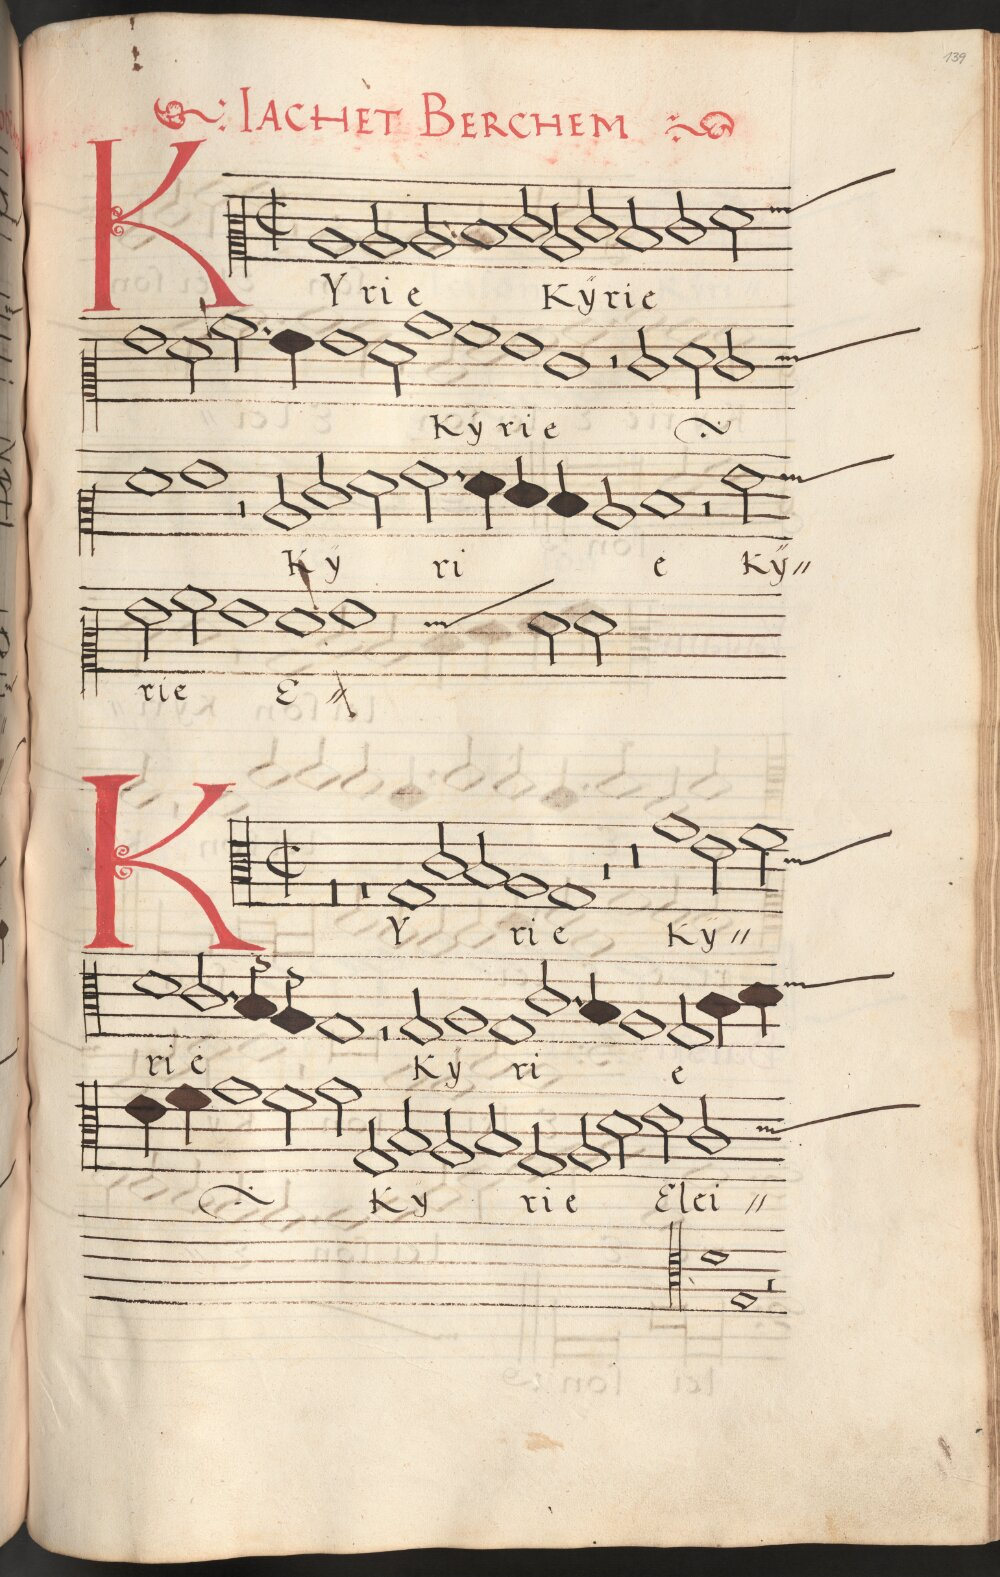 139
IACHET BERCHEM
KYrie Kÿrie
Kyrie
Ky ri e Kÿ〃
rie E 〃
KY rie Ky〃
rie Ky ri e
Ky rie Elei 〃